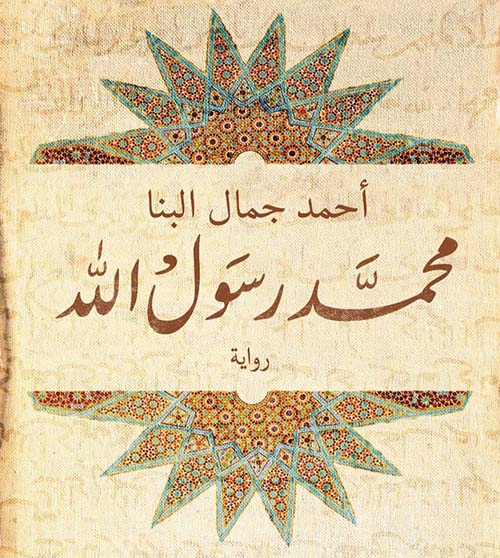 أحمد جمال البنا
محمَّد رسَوُل الله
رواية